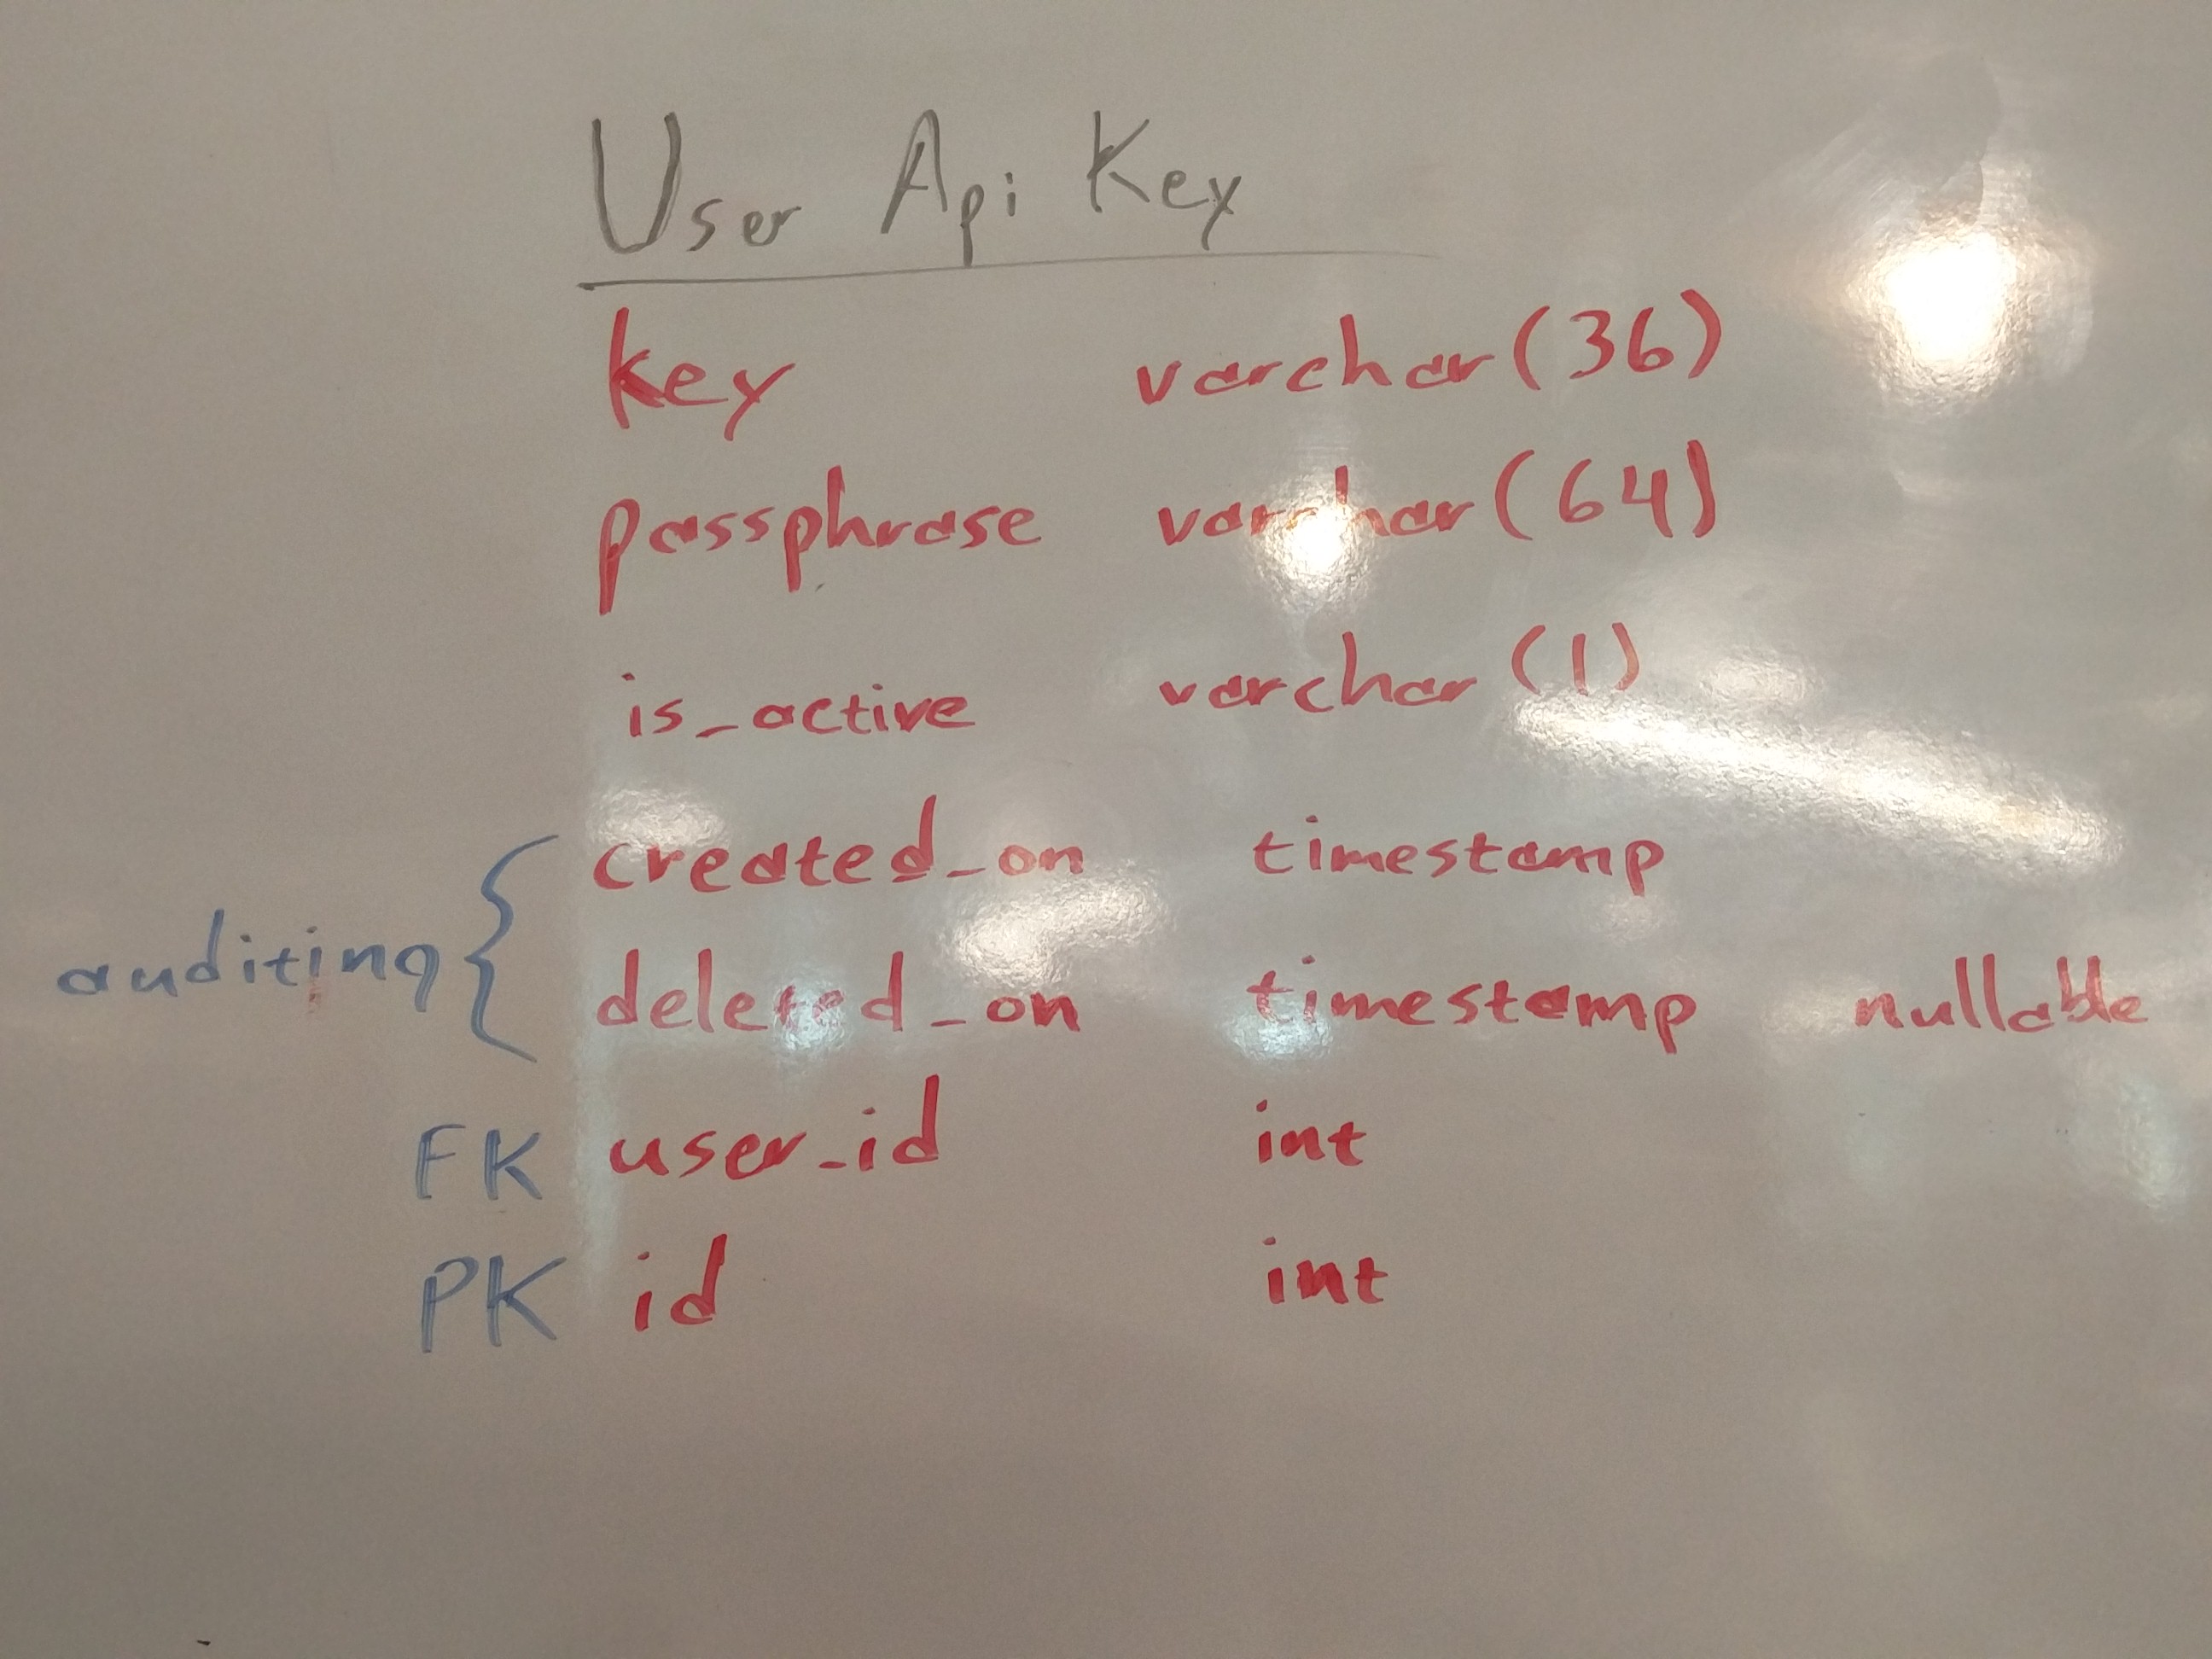 User Api Key
key varchar(36)
passphrase varchar(64)
is_active varchar(1)
created_on timestamp
auditing {
deleted_on timestamp nullable
FK user_id int
PK id int